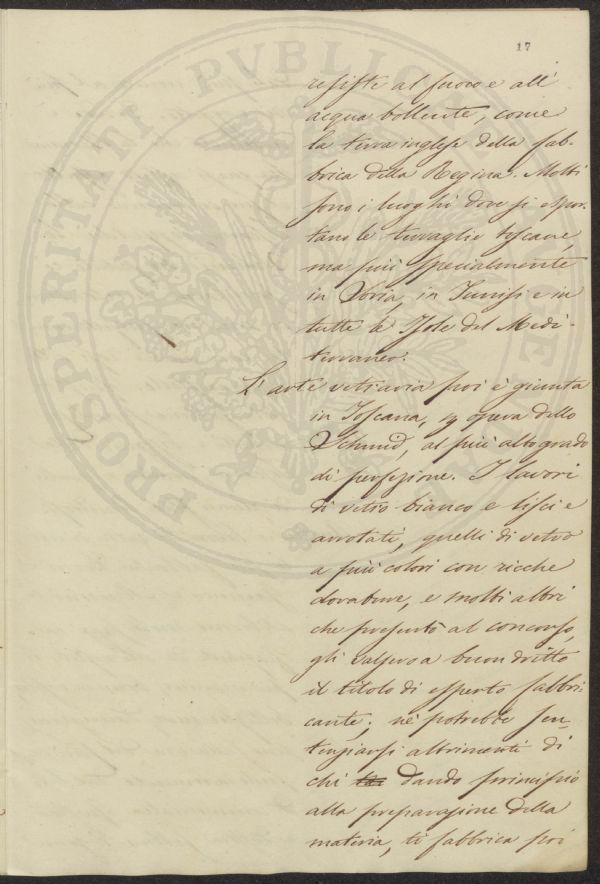 17
PROSPERITATI PVBLICAE
resiste al fuoco e all'
acqua bollente, come
la terra inglese della fab-
brica della Regina. Molti
sono i luoghi dove si espor-
tano le terraglie toscane,
ma più specialmente
in Soria, in Tunisi e in
tutte le Isole del Medi-
terraneo.
L'arte vetraria poi è giunta
in Toscana, p opera dello
Schmid, al più alto grado
di perfezione. I lavori
di vetro bianco e lisci e
arrotati, quelli di vetro
a più colori con ricche
dorature, e molti altri
che presentò al concorso,
gli valsero a buon dritto
il titolo di esperto fabbri-
cante; nè potrebbe sen-
tenziarsi altrimenti di
chi dando principio
alla preparazione della
materia, ti fabbrica poi